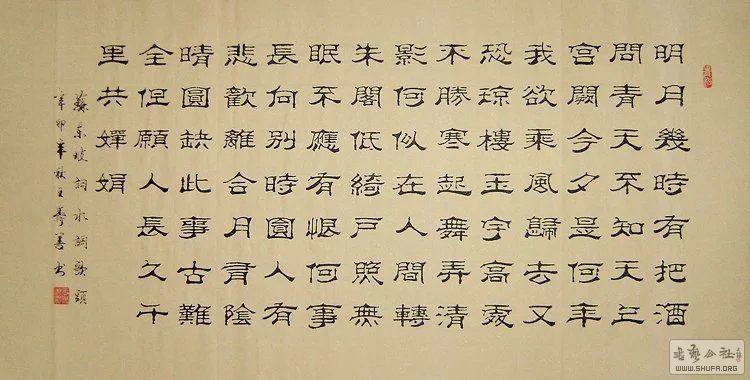 明月幾時有把酒
問青天不知天上
宮闕今夕是何年
我欲乘風歸去又
恐琼樓玉宇高處
不勝寒起舞弄清
影何似在人間轉
朱閣低綺戶照無
眠不應有恨何事
長向別時圓人有
悲歡離合月有陰
晴圓缺此事古難
全但願人長久千
里共嬋娟
蘇東坡詞水調歌頭
辛卯年秋王善書
书艺公社
WWW.SHUFA.ORG